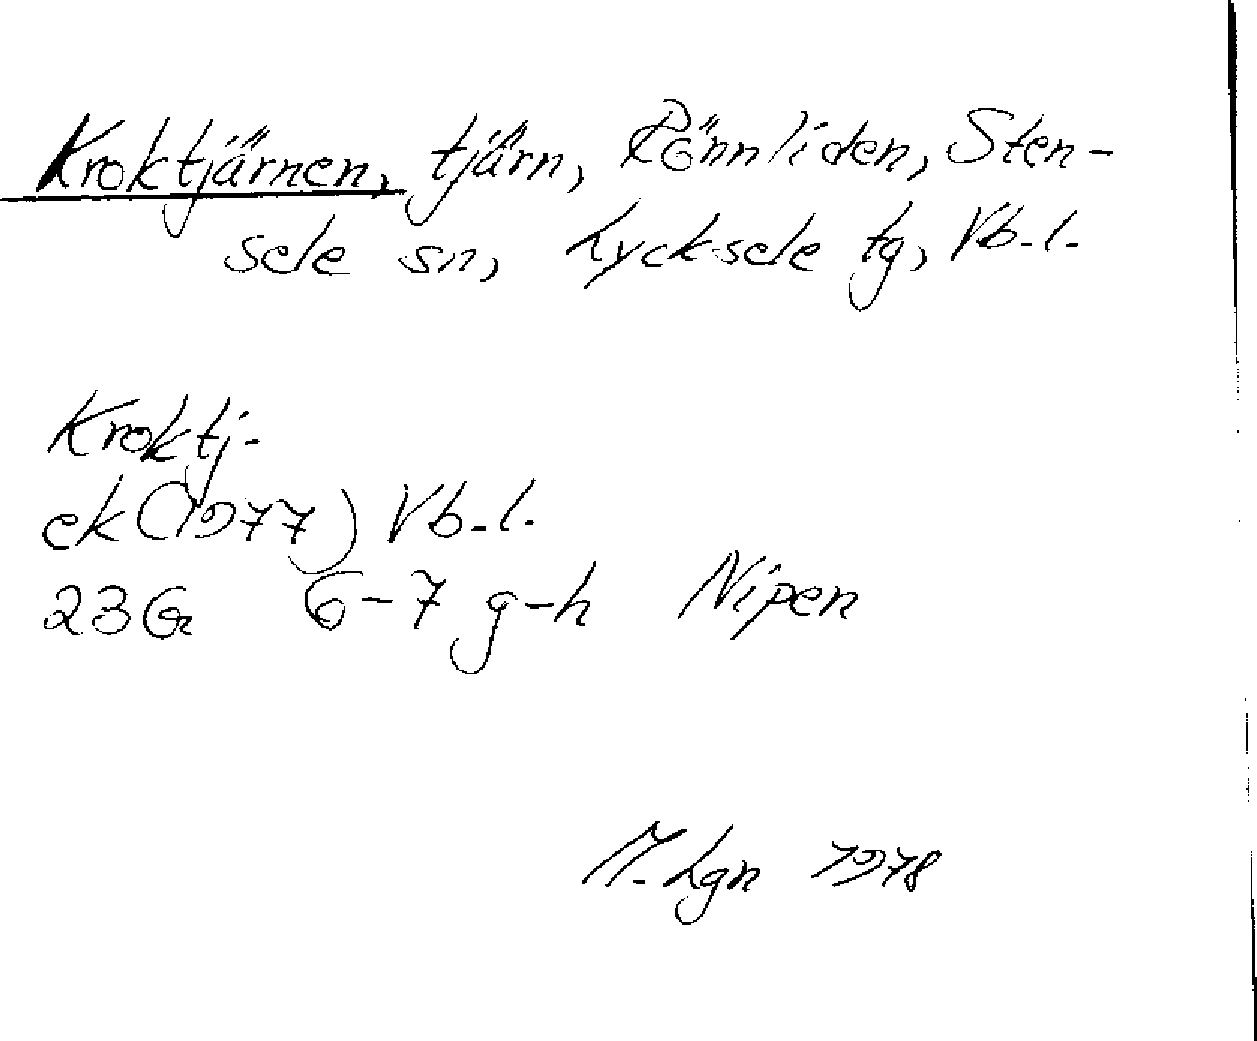 Kroktjärnen, tjärn, Rönnliden, Sten-
sele sn, Lycksele tg, Vb.l.
Kroktj-
ek (1977) Vb.l.
23G 6-7 g-h Nipen
M. Lgn 1978